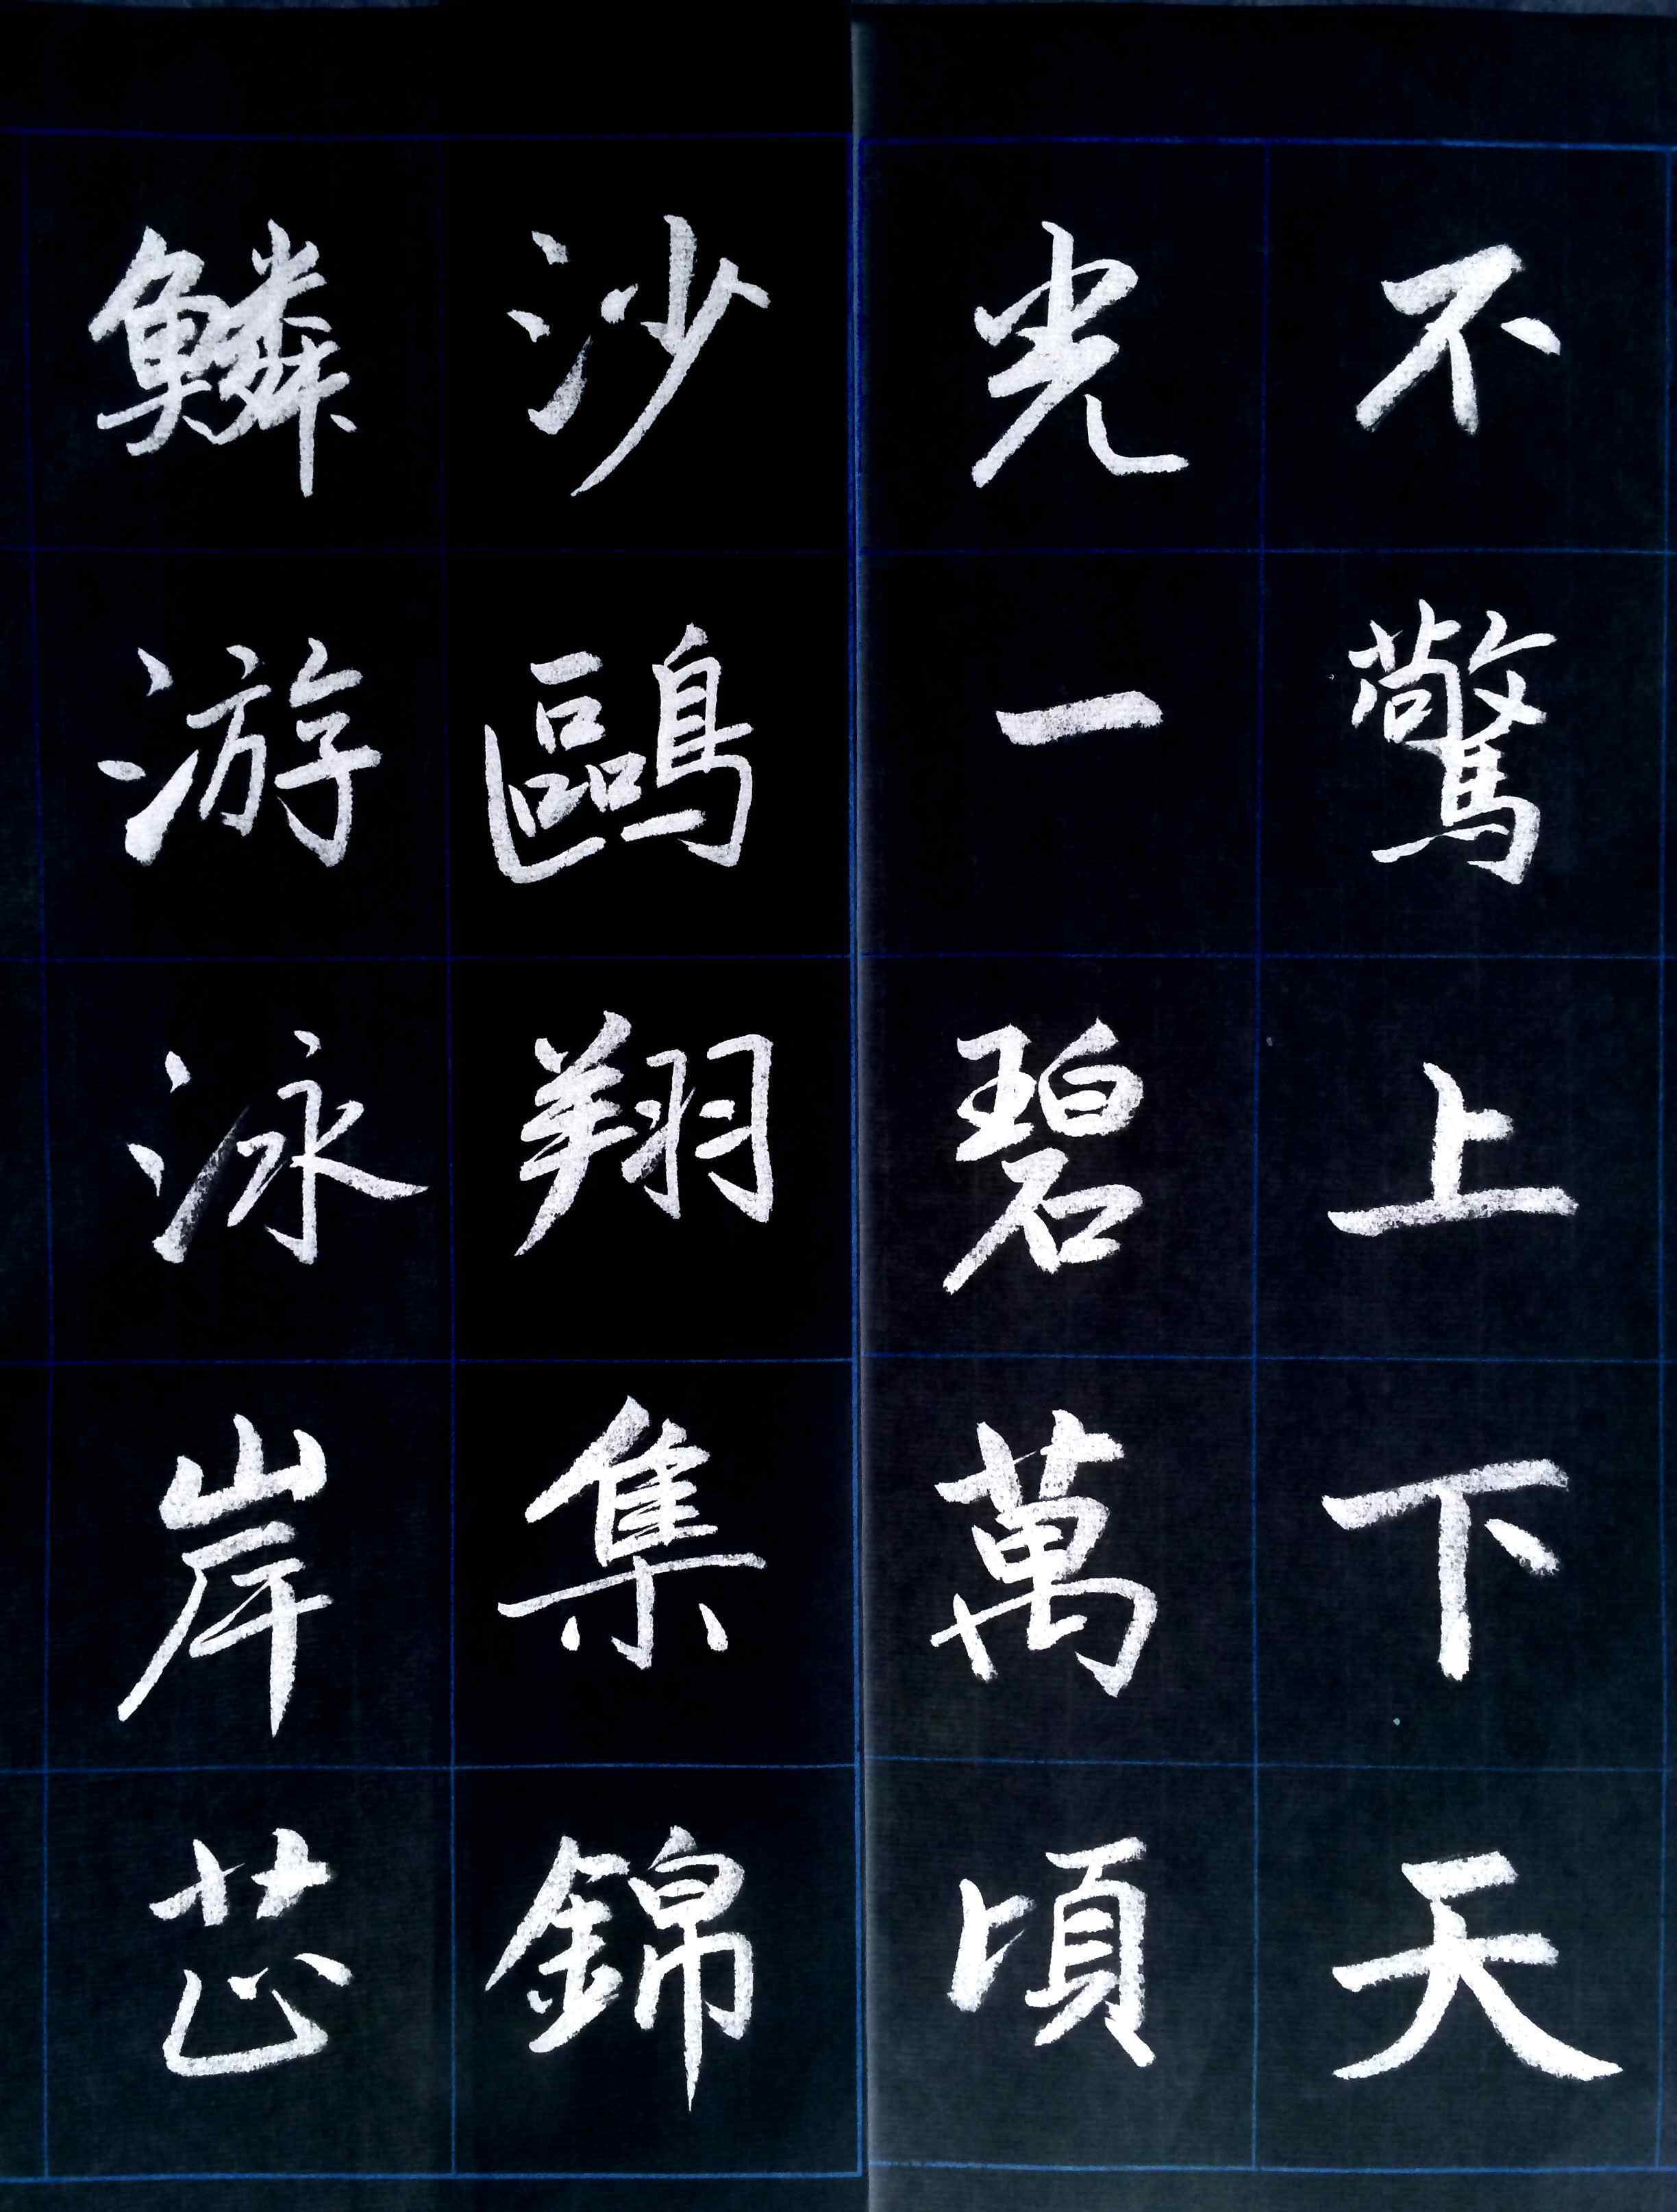 不驚上下天
光一碧萬頃
沙鷗翔集錦
鱗游泳岸芷